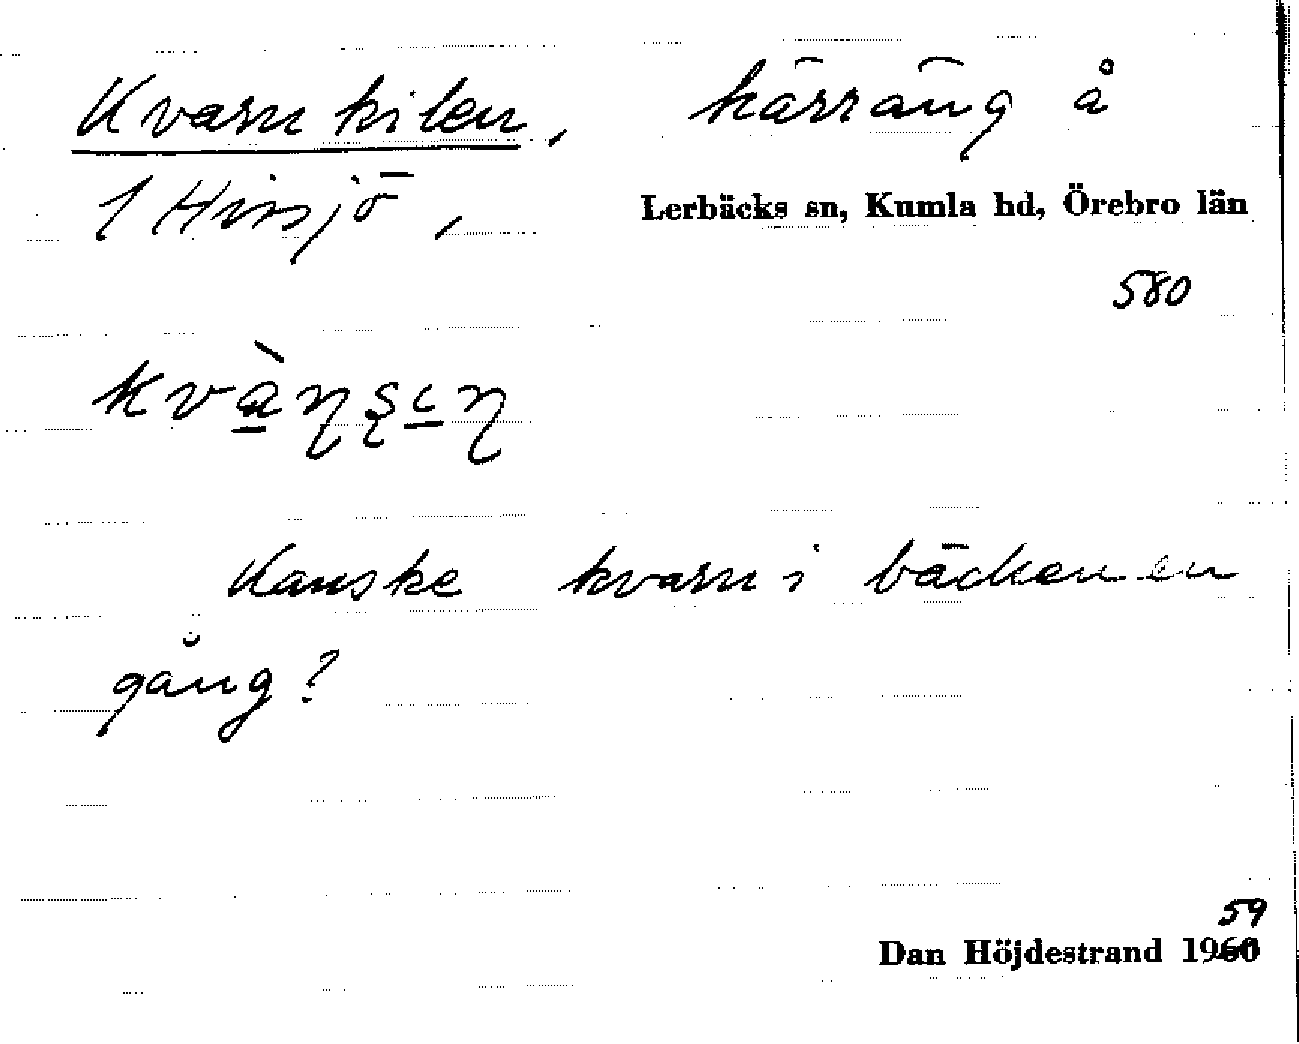 Kvarnkilen, kärräng å
1 Hinsjö, Lerbäcks sn, Kumla hd, Örebro län
580
Kanske kvarn i bäcken en
gång?
59
Dan Höjdestrand 1960